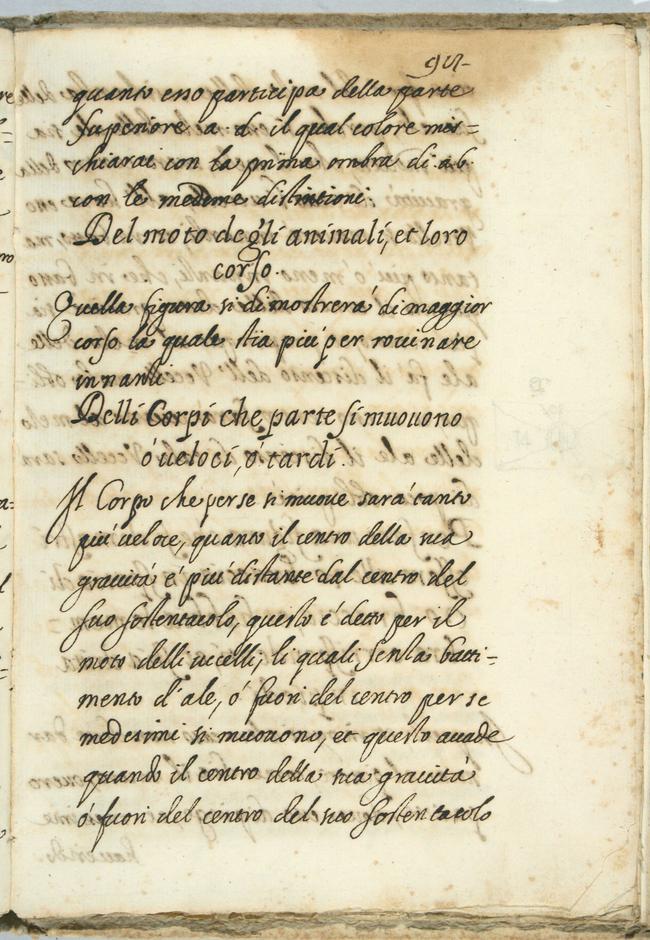 95
quanto esso participa della parte
superiore a. d. il qual colore mis=
chiarai con la prima ombra di .a.b.
con le medeme distintioni.
Del moto degli animali, et loro
corso.
Quella figura si dimostrerà di maggior
corso la quale stia piú per rouinare
innanti
Delli Corpi che parte si muouono
ó ueloci, ó tardi.
Il Corpo che perse si muoue sará tanto
piú ueloce, quanto il centro della sua
grauitá é piú distante dal centro del
suo sostentacolo, questo é detto per il
moto delli uccelli, li quali senza batti=
mento d'ale, ó fuori del centro per se
medesimi si muouono, et questo accade
quando il centro della sua grauitá
ó fuori del centro del suo sostentacolo